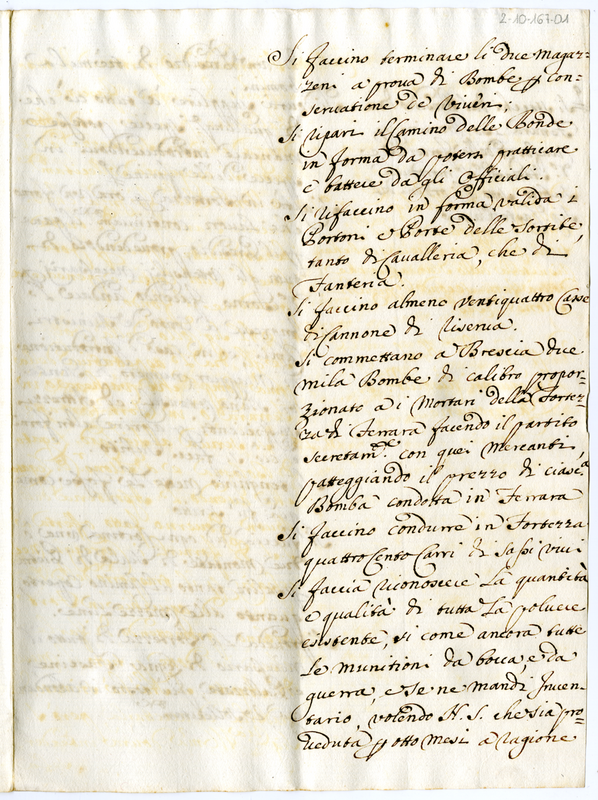 2-10-167-01
Si faccino terminare li due Magaz-
zeni a prova di Bombe p con-
servatione de viveri;
Si ripari il Camino delle Ronde
in forma da potersi pratticare
e battere da gli Officiali.
Si rifaccino in forma valida i
Portoni e Porte delle Sortite,
tanto di Cavalleria, che di
Fanteria.
Si faccino almeno ventiquattro Casse
di Cannone di riserva.
Si commettano a Brescia due
mila Bombe di calibro propor-
zionato a i Mortari della Fortez-
za di Ferrara facendo il partito
secretam.te con quei Mercanti,
patteggiando il prezzo di ciasc.a
Bomba condotta in Ferrara
Si faccino condurre in Fortezza
quattro Cento Carri di Sassi vivi
Si faccia riconoscere La quantità
e qualità di tutta La polvere
esistente, si come ancora tutte
Le munitioni da bocca, e da
guerra, e se ne mandi Inven-
tario, volendo N. S. che sia pro-
veduta p otto mesi a ragione